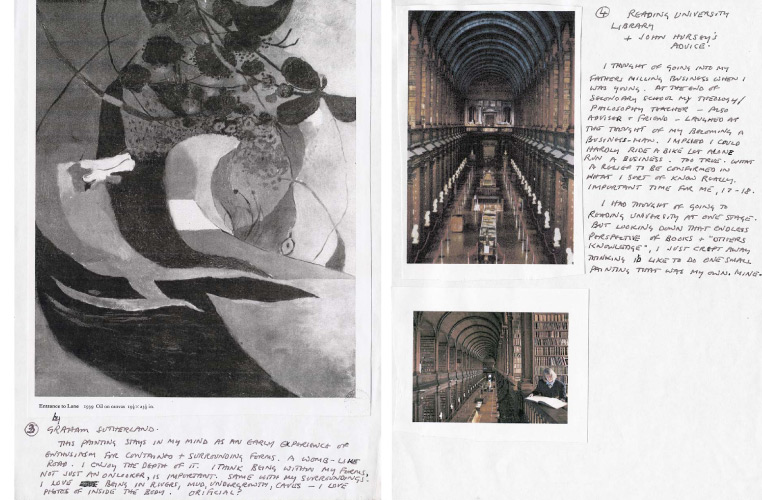 Entrance to Lane 1939 Oil on canvas
by
③ GRAHAM SUTHERLAND.
THIS PAINTING STAYS IN MY MIND AS AN EARLY EXPERIENCE OF
ENTHUSIASM FOR CONTAINED + SURROUNDING FORMS. A WOMB-LIKE
ROAD. I ENJOY THE DEPTH OF IT. I THINK BEING WITHIN MY FORMS,
NOT JUST AN ONLOOKER, IS IMPORTANT. SAME WITH MY SURROUNDINGS.
I LOVE BEING IN RIVERS, MUD, UNDERGROWTH, CAVES - I LOVE
PHOTOS OF INSIDE THE BODY. ORIFICIAL?
④ READING UNIVERSITY
LIBRARY
+ JOHN HURSEY'S
ADVICE.
I THOUGHT OF GOING INTO MY
FATHERS MILLING BUSINESS WHEN I
WAS YOUNG. AT THE END OF
SECONDARY SCHOOL MY THEOLOGY/
PHILOSOPHY TEACHER - ALSO
ADVISER + FRIEND - LAUGHED AT
THE THOUGHT OF MY BECOMING A
BUSINESS-MAN. IMPLIED I COULD
HARDLY RIDE A BIKE LET ALONE
RUN A BUSINESS. TOO TRUE. WHAT
A RELIEF TO BE CONFIRMED IN
WHAT I SORT OF KNEW REALLY.
IMPORTANT TIME FOR ME, 17-18.
I HAD THOUGHT OF GOING TO
READING UNIVERSITY AT ONE STAGE.
BUT LOOKING DOWN THAT ENDLESS
PERSPECTIVE OF BOOKS + "OTHERS
KNOWLEDGE", I JUST CREPT AWAY
THINKING ID LIKE TO DO ONE SMALL
PAINTING THAT WAS MY OWN. MINE.